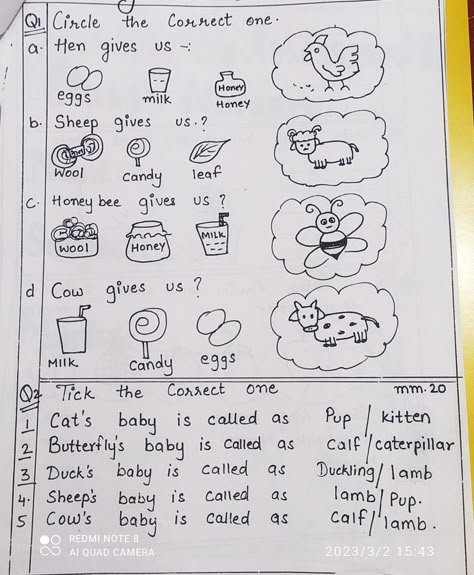 Q1 Circle the Correct one.
a. Hen gives us -:
eggs milk Honey Honey
b. Sheep gives us.?
Wool candy leaf
c. Honey bee gives us ?
Wool Honey MILK
d Cow gives us ?
Milk candy eggs
Q2 Tick the Correct one mm.20
1 Cat's baby is called as Pup / kitten
2 Butterfly's baby is called as calf / caterpillar
3 Duck's baby is called as Duckling / lamb
4. Sheep's baby is called as lamb / Pup.
5 Cow's baby is called as calf / lamb.
REDMI NOTE 8
AI QUAD CAMERA
2023/3/2 15:43